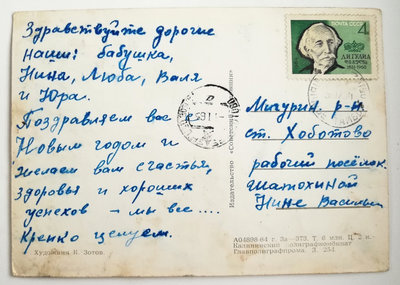 Здравствуйте дорогие
наши: бабушка,
Нина, Люба, Валя
и Юра.
Поздравляем вас с
Новым годом и
желаем вам счастья,
здоровья и хороших
успехов - мы все ....
Крепко целуем.
Художник К. Зотов.
Издательство «Советский
ПОЧТА СССР
4
Д.И.ГУЛИА
Мичурин. р-н
ст. Хоботово
рабочий посёлок
Шатохиной
Нине Василь
А04898 64 г. Зак. 973. Т. 6 млн. Ц. 3 к.
Калининский полиграфкомбинат
Главполиграфпрома. З. 254